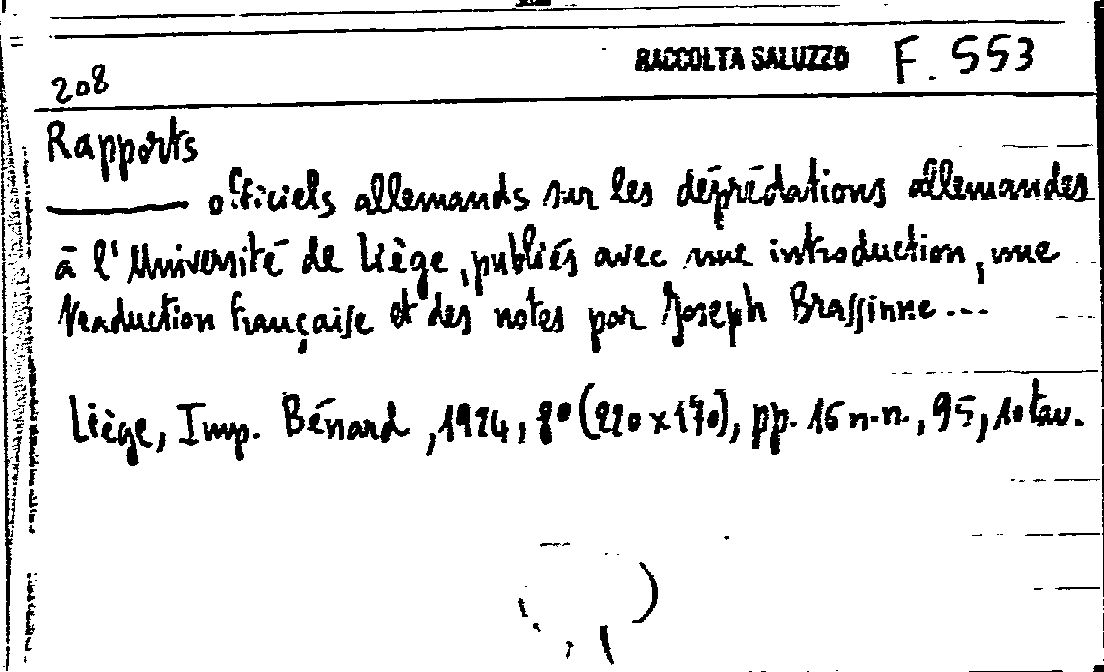 RACCOLTA SALUZZO F. 553
208
Rapports
officiels allemands sur les déprédations allemandes
à l'Université de Liège, publiés avec une introduction, une
traduction française et des notes par Joseph Brassinne...
Liège, Imp. Bénard, 1924, 8° (220 x 170), pp. 16 n.n., 95, 10 tav.